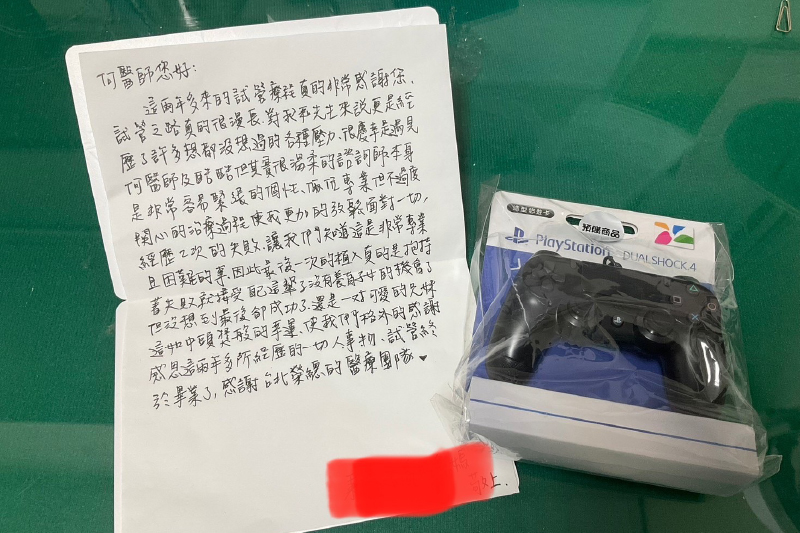 何醫師您好:
這兩年多來的試管療程真的非常感謝您,
試管之路真的很漫長,對我和先生來說更是經
歷了許多想都沒想過的各種壓力,很慶幸是遇見
何醫師及酷酷但其實很溫柔的諮詢師,本身
是非常容易緊張的個性,
專業也不過度
關心的治療過程使我更加的放鬆面對一切,
經歷2次的失敗,讓我們知道這是非常專業
且困難的事,因此最後一次的植入真的是抱持
著失敗就接受
這輩子沒有養育子女的機會了
但沒想到最後卻成功了,還是一對可愛的兄妹
這如中頭獎般的幸運,使我們格外的感謝
感恩這兩年多所經歷的一切人事物,試管終
於畢業了,感謝台北榮總的醫療團隊♥
敬上.
造型悠遊卡
預購商品
PlayStation
DUALSHOCK 4